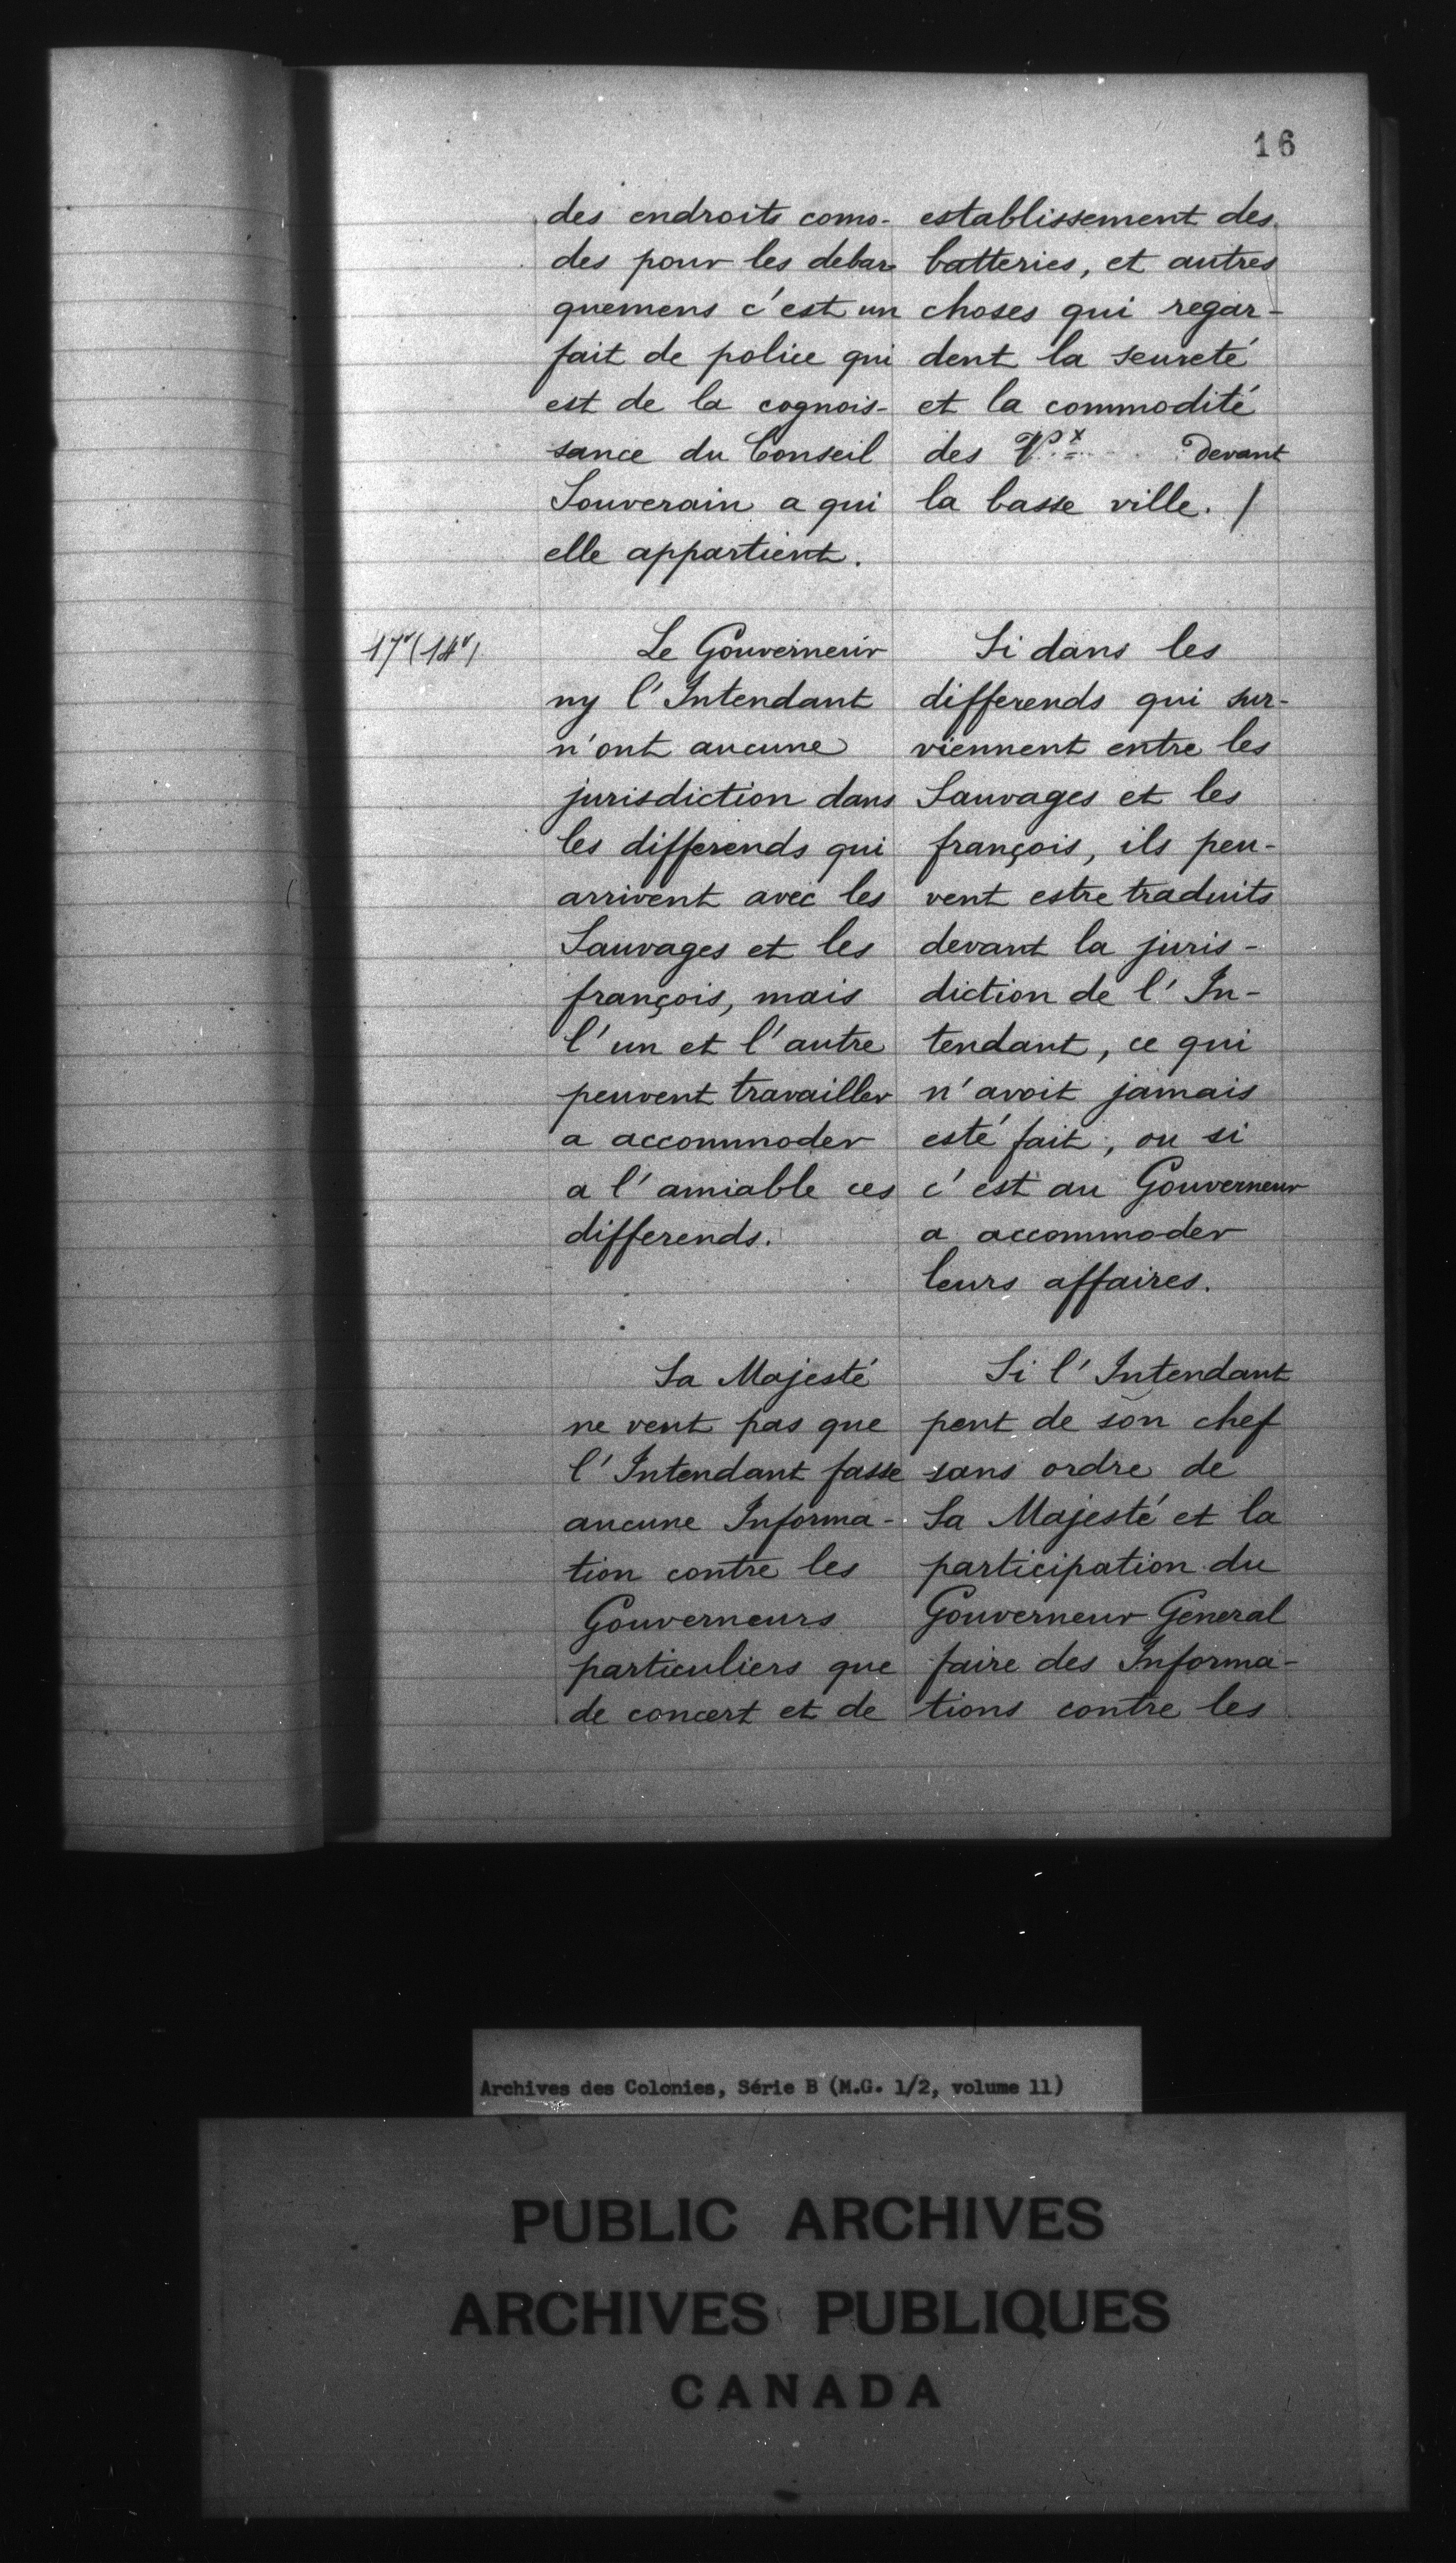 16
des endroits como-
des pour les debar
quemens c'est un
fait de police qui
est de la cognois-
sance du Conseil
Souverain a qui
elle appartient.
establissement des
batteries, et autres
choses qui regar-
dent la seureté
et la commodité
des Vx devant
la basse ville. /
17v (14v)
Le Gouverneur
ny l'Intendant
n'ont aucune
jurisdiction dans
les differends qui
arrivent avec les
Sauvages et les
françois, mais
l'un et l'autre
peuvent travailler
a accommoder
a l'amiable ces
differends.
Si dans les
differends qui sur-
viennent entre les
Sauvages et les
françois, ils peu-
vent estre traduits
devant la juris-
diction de l'In-
tendant, ce qui
n'avoit jamais
esté fait, ou si
c'est au Gouverneur
a accommoder
leurs affaires.
Sa Majesté
ne veut pas que
l'Intendant fasse
aucune Informa-
tion contre les
Gouverneurs
particuliers que
de concert et de
Si l'Intendant
peut de son chef
sans ordre de
Sa Majesté et la
participation du
Gouverneur General
faire des Informa-
tions contre les
Archives des Colonies, Série B (M.G. 1/2, volume 11)
PUBLIC ARCHIVES
ARCHIVES PUBLIQUES
CANADA